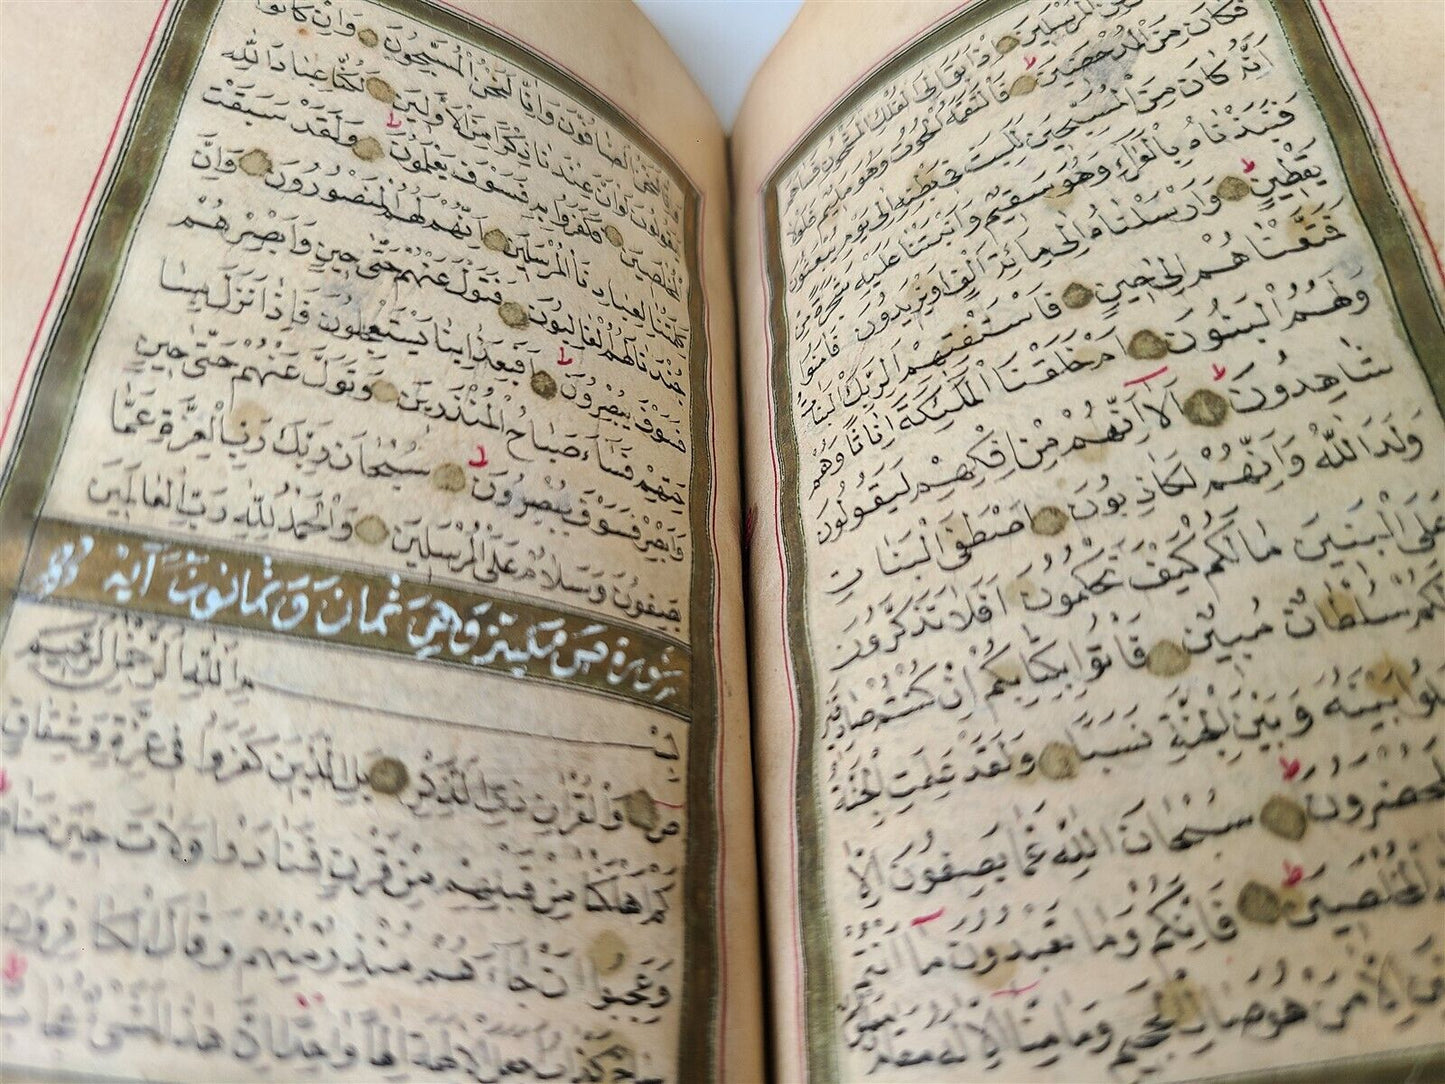 الْمُرْسَلِينَ اِذْ اَبَقَ اِلَى الْفُلْكِ الْمَشْحُونِ فَسَاهَمَ
فَكَانَ مِنَ الْمُدْحَضِينَ فَالْتَقَمَهُ الْحُوتُ وَهُوَ مُلِيمٌ فَلَوْلَا
اَنَّهُ كَانَ مِنَ الْمُسَبِّحِينَ لَلَبِثَ فِى بَطْنِهِ اِلَى يَوْمِ يُبْعَثُونَ
فَنَبَذْنَاهُ بِالْعَرَاءِ وَهُوَ سَقِيمٌ وَاَنْبَتْنَا عَلَيْهِ شَجَرَةً مِنْ
يَقْطِينٍ وَاَرْسَلْنَاهُ اِلَى مِائَةِ اَلْفٍ اَوْ يَزِيدُونَ فَاٰمَنُوا
فَمَتَّعْنَاهُمْ اِلَى حِينٍ فَاسْتَفْتِهِمْ اَلِرَبِّكَ الْبَنَاتُ
وَلَهُمُ الْبَنُونَ اَمْ خَلَقْنَا الْمَلٰئِكَةَ اِنَاثًا وَهُمْ
شَاهِدُونَ اَلَا اِنَّهُمْ مِنْ اِفْكِهِمْ لَيَقُولُونَ
وَلَدَ اللّٰهُ وَاِنَّهُمْ لَكَاذِبُونَ اَصْطَفَى الْبَنَاتِ
عَلَى الْبَنِينَ مَالَكُمْ كَيْفَ تَحْكُمُونَ اَفَلَا تَذَكَّرُونَ
سُلْطَانٌ مُبِينٌ فَأْتُوا بِكِتَابِكُمْ اِنْ كُنْتُمْ صَادِقِينَ
بَيْنَهُ وَبَيْنَ الْجِنَّةِ نَسَبًا وَلَقَدْ عَلِمَتِ الْجِنَّةُ
لَمُحْضَرُونَ سُبْحَانَ اللّٰهِ عَمَّا يَصِفُونَ اِلَّا
الْمُخْلَصِينَ فَاِنَّكُمْ وَمَا تَعْبُدُونَ مَا اَنْتُمْ
اِلَّا مَنْ هُوَ صَالِ الْجَحِيمِ وَمَا مِنَّا اِلَّا لَهُ مَقَامٌ
لَنَحْنُ الصَّافُّونَ وَاِنَّا لَنَحْنُ الْمُسَبِّحُونَ وَاِنْ كَانُوا
لَيَقُولُونَ لَوْ اَنَّ عِنْدَنَا ذِكْرًا مِنَ الْاَوَّلِينَ لَكُنَّا عِبَادَ اللّٰهِ
الْمُخْلَصِينَ فَكَفَرُوا بِهِ فَسَوْفَ يَعْلَمُونَ وَلَقَدْ سَبَقَتْ
كَلِمَتُنَا لِعِبَادِنَا الْمُرْسَلِينَ اِنَّهُمْ لَهُمُ الْمَنْصُورُونَ وَاِنَّ
جُنْدَنَا لَهُمُ الْغَالِبُونَ فَتَوَلَّ عَنْهُمْ حَتَّى حِينٍ وَاَبْصِرْهُمْ
فَسَوْفَ يُبْصِرُونَ اَفَبِعَذَابِنَا يَسْتَعْجِلُونَ فَاِذَا نَزَلَ بِسَا
حَتِهِمْ فَسَاءَ صَبَاحُ الْمُنْذَرِينَ وَتَوَلَّ عَنْهُمْ حَتَّى حِينٍ
وَاَبْصِرْ فَسَوْفَ يُبْصِرُونَ سُبْحَانَ رَبِّكَ رَبِّ الْعِزَّةِ عَمَّا
يَصِفُونَ وَسَلَامٌ عَلَى الْمُرْسَلِينَ وَالْحَمْدُ لِلّٰهِ رَبِّ الْعَالَمِينَ
سُورَةُ ص مَكِّيَّةٌ وَهِيَ ثَمَانٌ وَثَمَانُونَ آيَةً
بِسْمِ اللّٰهِ الرَّحْمٰنِ الرَّحِيمِ
ص وَالْقُرْاٰنِ ذِى الذِّكْرِ بَلِ الَّذِينَ كَفَرُوا فِى عِزَّةٍ وَشِقَاقٍ
كَمْ اَهْلَكْنَا مِنْ قَبْلِهِمْ مِنْ قَرْنٍ فَنَادَوْا وَلَاتَ حِينَ مَنَاصٍ
وَعَجِبُوا اَنْ جَاءَهُمْ مُنْذِرٌ مِنْهُمْ وَقَالَ الْكَافِرُونَ
كَذَّابٌ اَجَعَلَ الْاٰلِهَةَ اِلٰهًا وَاحِدًا اِنَّ هٰذَا لَشَىْءٌ عُجَابٌ